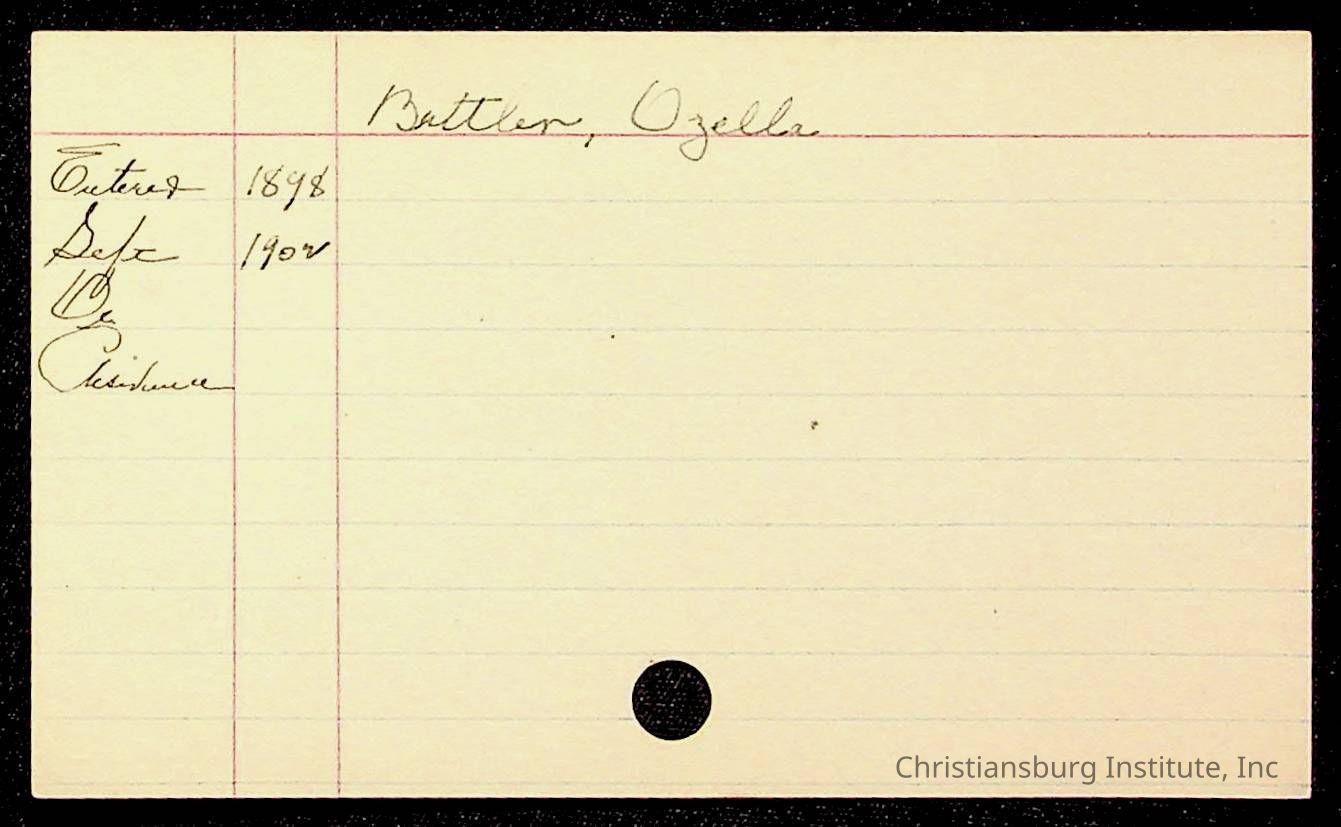 Battler, Ozella
Entered 1898
Left 1902
Residence
Christiansburg Institute, Inc